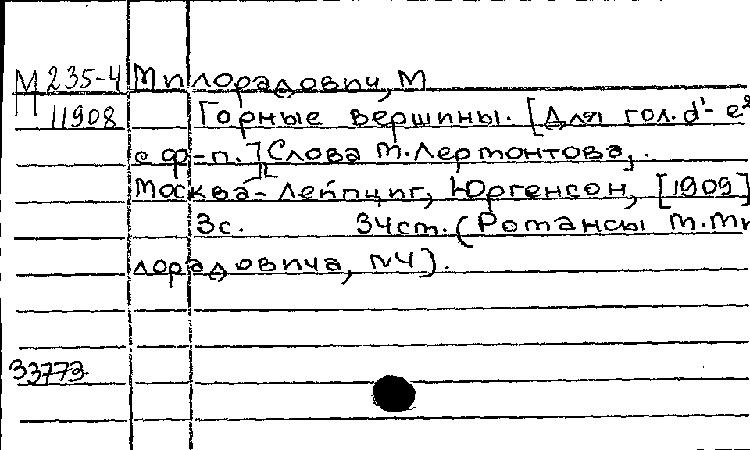 М 235-4 Милорадович, М
11908 Горные вершины. [Для гол. d'- e²
с ф-п.] Слова М. Лермонтова,.
Москва - Лейпциг, Юргенсон, [1909]
3с. 34см. (Романсы М. Ми
лорадовича, №4).
33773